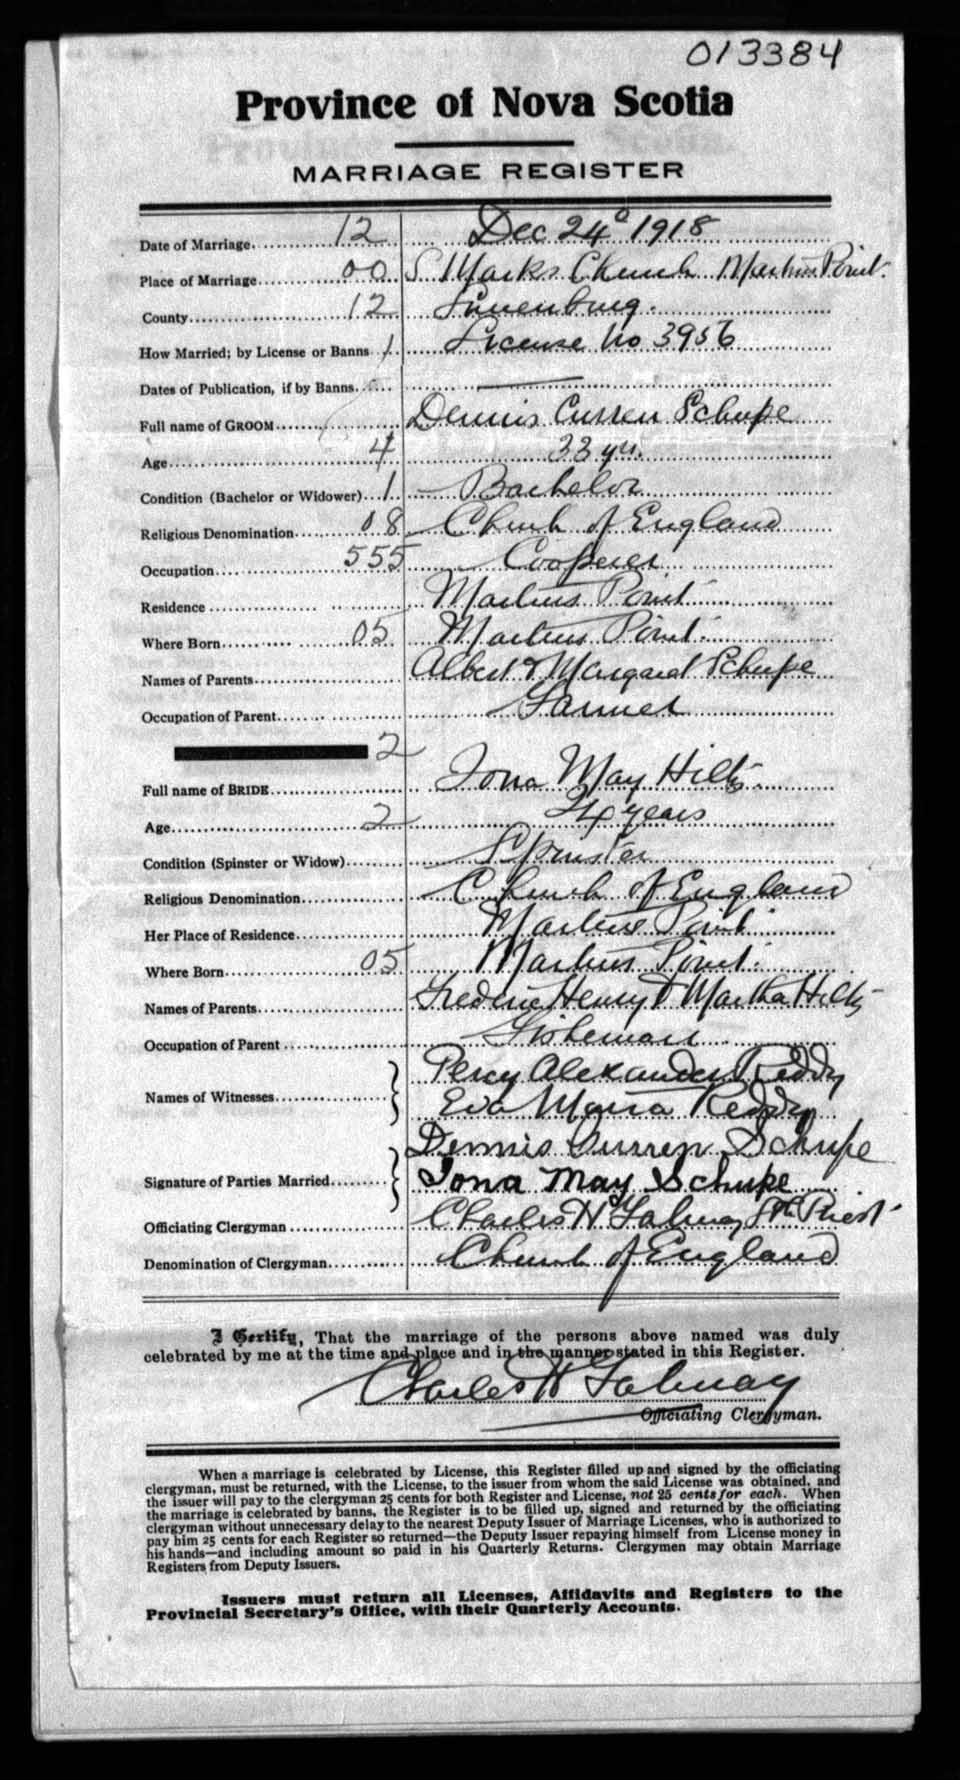 013384
Province of Nova Scotia
MARRIAGE REGISTER
Date of Marriage. 12 Dec 24º 1918
Place of Marriage 00 S Marks Church Martins Point.
County 12 Lunenburg.
How Married; by License or Banns 1 License No 3956
Dates of Publication, if by Banns. —
Full name of GROOM Dennis Curren Schupe
Age 4 33 yrs.
Condition (Bachelor or Widower) 1 Bachelor
Religious Denomination 08 Church of England
Occupation 555 Cooperer
Residence Martins Point
Where Born 05 Martins Point.
Names of Parents Albert & Margaret Schupe
Occupation of Parent Farmer
2
Full name of BRIDE Iona May Hilts.
Age 2 24 years
Condition (Spinster or Widow) Spinster
Religious Denomination Church of England
Her Place of Residence Martins Point
Where Born 05 Martins Point.
Names of Parents Frederic Henry & Martha Hilts
Occupation of Parent Fisherman
Names of Witnesses Percy Alexander Reddy
Eva Maria Reddy
Signature of Parties Married Dennis Curren Schupe
Iona May Schupe
Officiating Clergyman Charles H Talmay Priest
Denomination of Clergyman Church of England
I Certify, That the marriage of the persons above named was duly
celebrated by me at the time and place and in the manner stated in this Register.
Charles H Talmay
Officiating Clergyman.
When a marriage is celebrated by License, this Register filled up and signed by the officiating
clergyman, must be returned, with the License, to the issuer from whom the said License was obtained, and
the issuer will pay to the clergyman 25 cents for both Register and License, not 25 cents for each. When
the marriage is celebrated by banns, the Register is to be filled up, signed and returned by the officiating
clergyman without unnecessary delay to the nearest Deputy Issuer of Marriage Licenses, who is authorized to
pay him 25 cents for each Register so returned—the Deputy Issuer repaying himself from License money in
his hands—and including amount so paid in his Quarterly Returns. Clergymen may obtain Marriage
Registers from Deputy Issuers.
Issuers must return all Licenses, Affidavits and Registers to the
Provincial Secretary's Office, with their Quarterly Accounts.